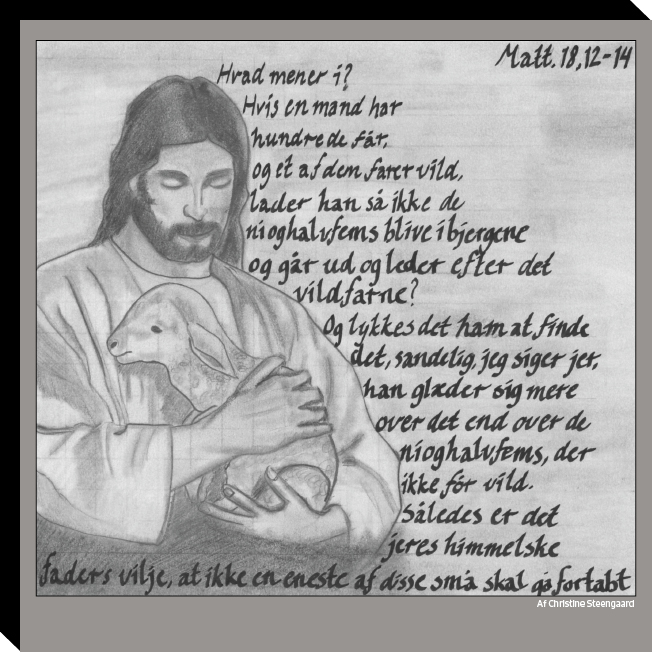 Matt. 18,12-14
Hvad mener i?
Hvis en mand har
hundrede får,
og et af dem farer vild,
lader han så ikke de
nioghalvfems blive i bjergene
og går ud og leder efter det
vildfarne?
Og lykkes det ham at finde
det, sandelig, jeg siger jer,
han glæder sig mere
over det end over de
nioghalvfems, der
ikke fór vild.
Således er det
jeres himmelske
faders vilje, at ikke en eneste af disse små skal gå fortabt
Af Christine Steengaard